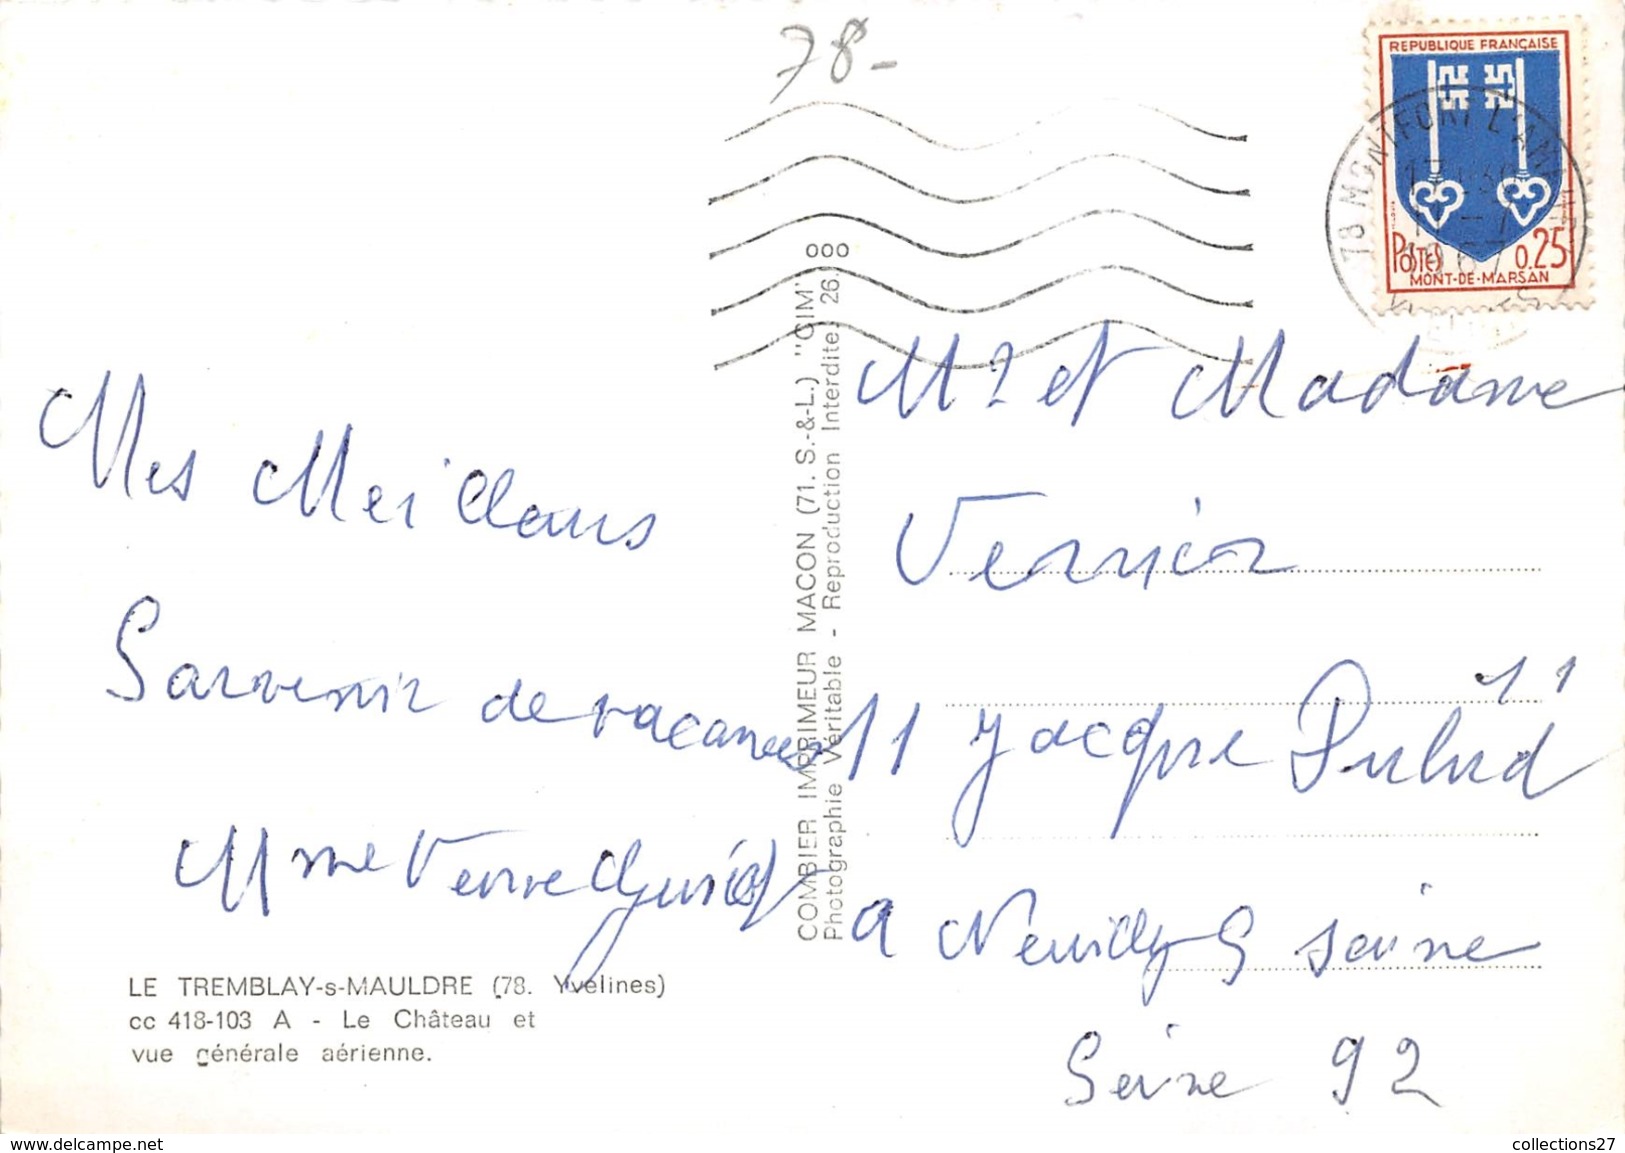 78-
REPUBLIQUE FRANÇAISE
POSTES 0.25
MONT-DE-MARSAN
78 MONTFORT L'AMAURY
1967
YVELINES
ooo
COMBIER IMPRIMEUR MACON (71. S.-&-L.) "CIM"
Photographie Véritable - Reproduction Interdite. 26.
Mes Meilleurs
Souvenir de vacances
Mme
LE TREMBLAY-s-MAULDRE (78. Yvelines)
cc 418-103 A - Le Château et
vue générale aérienne.
Mr et Madame
Vernier
11
11 Jacque Dulud
a Neuilly S Seine
Seine 92
www.delcampe.net
collections27